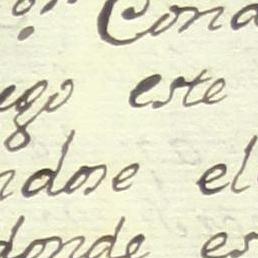 Cond
ego este
ndose el
donde es